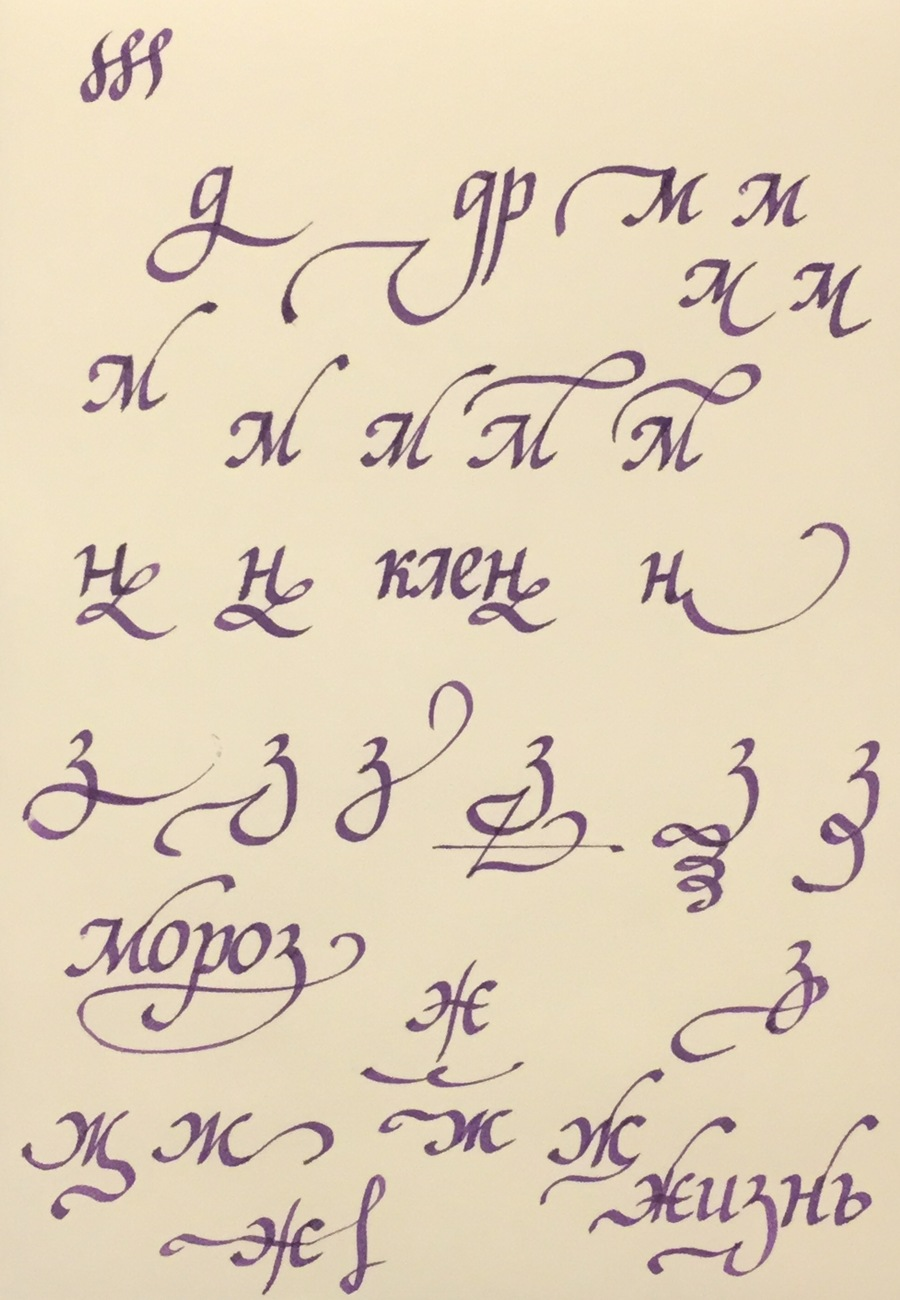 д др м м
м м
м м м м м
н н клен н
з з з з з з
мороз
ж з
ж ж ж ж
жизнь
ж